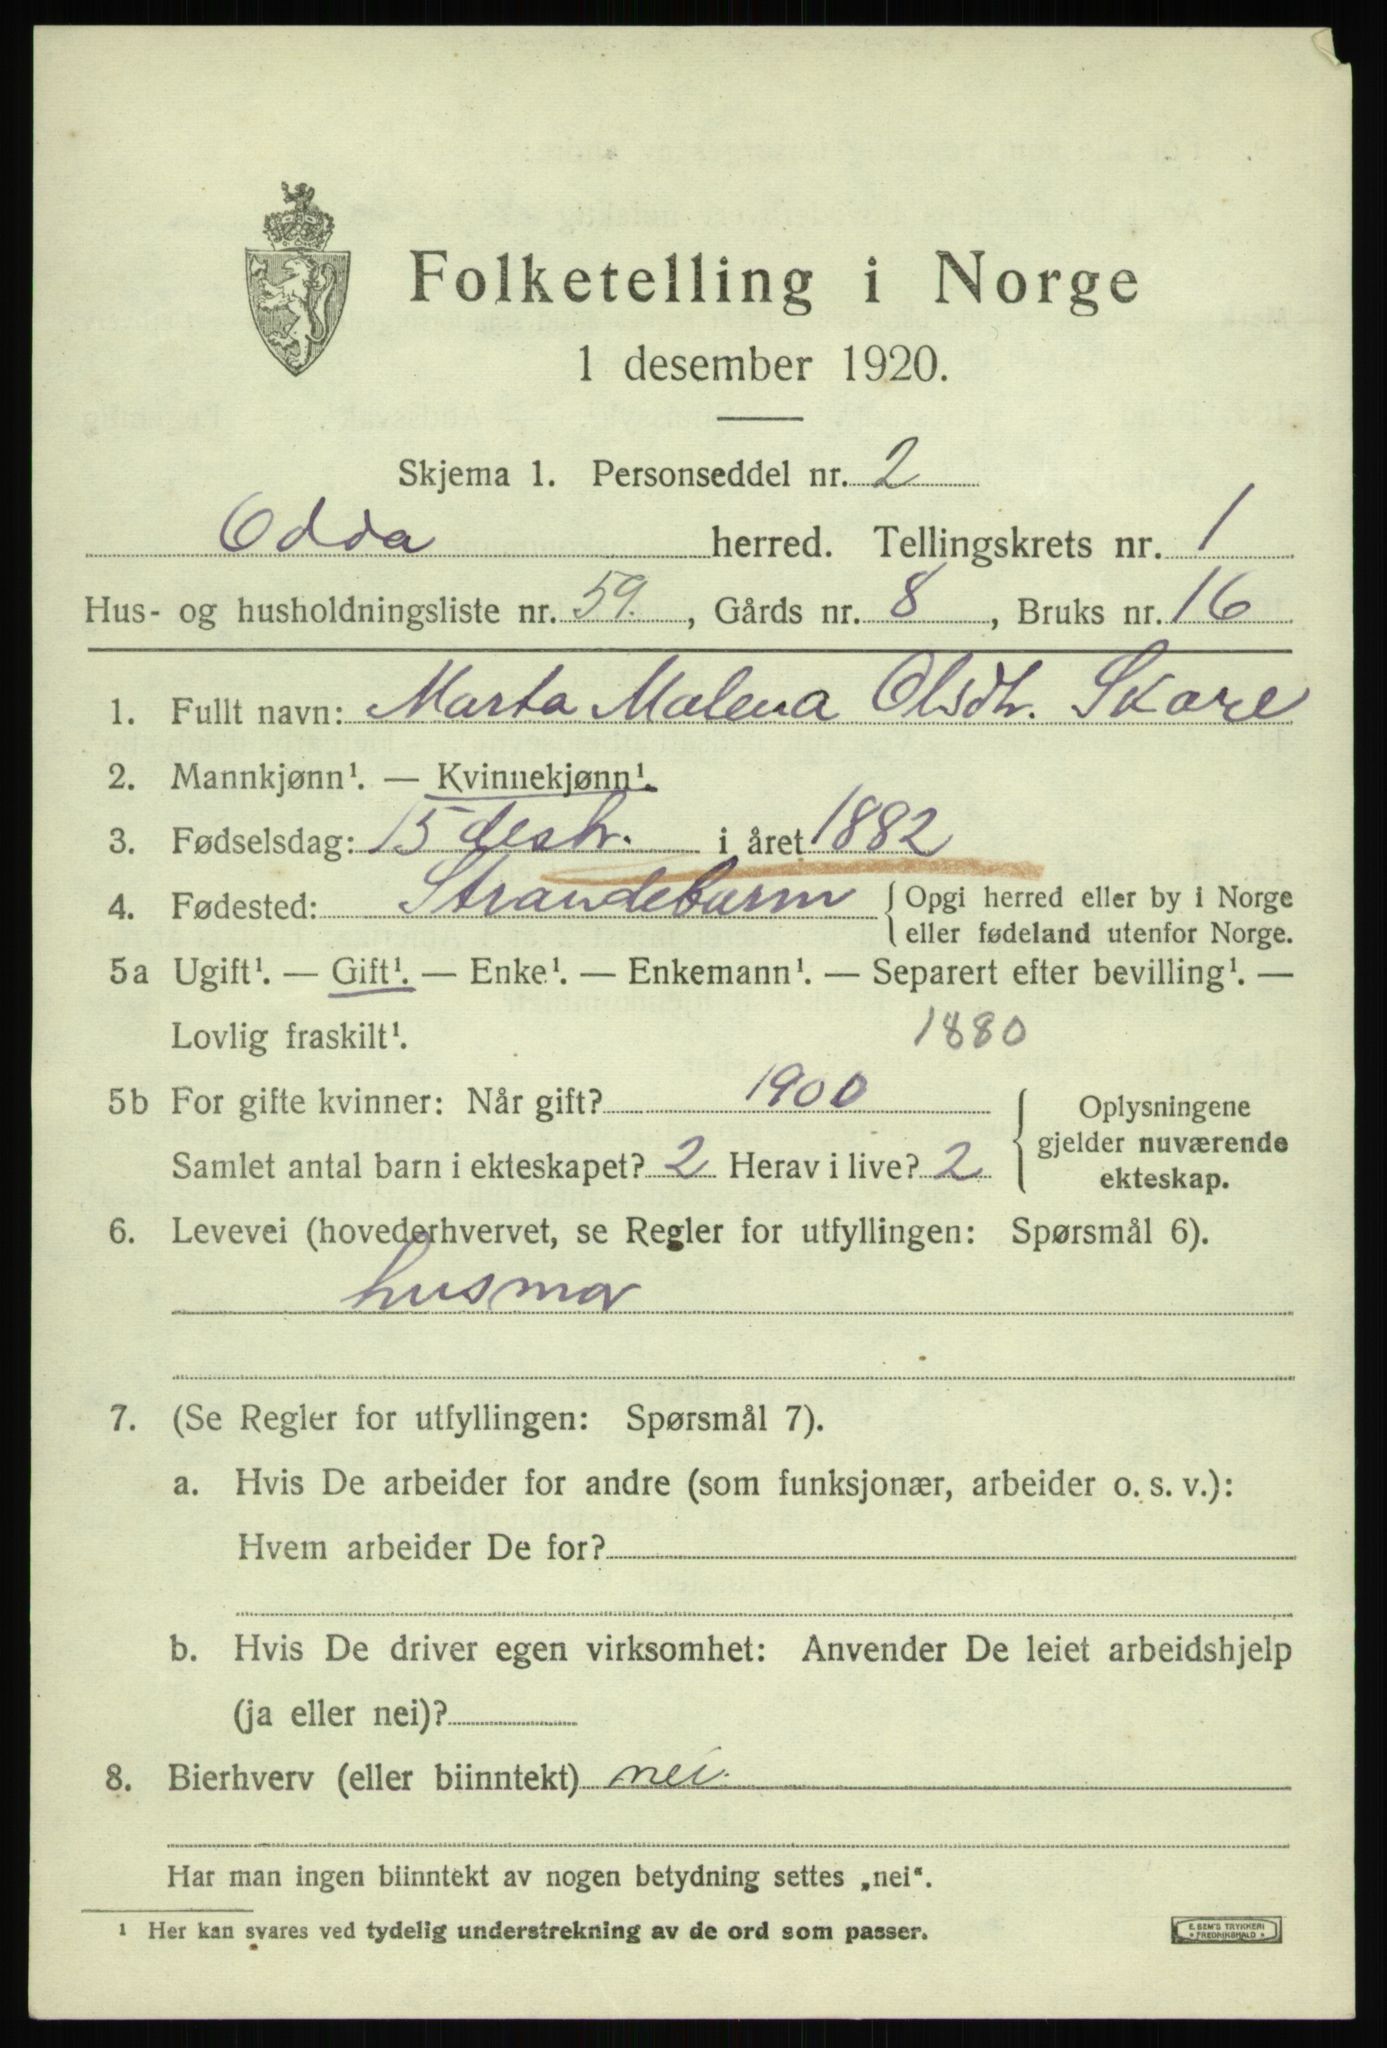 Folketelling i Norge
1 desember 1920.
Skjema 1. Personseddel nr. 2
Odda herred. Tellingskrets nr. 1
Hus- og husholdningsliste nr. 59. , Gårds nr. 8 , Bruks nr. 16
1. Fullt navn: Marta Malena Olsdtr. Skare
2. Mannkjønn¹. — Kvinnekjønn¹.
3. Fødselsdag: 15 desbr. i året 1882
4. Fødested: Strandebarm { Opgi herred eller by i Norge
eller fødeland utenfor Norge.
5a Ugift¹. — Gift¹. — Enke¹. — Enkemann¹. — Separert efter bevilling¹. —
Lovlig fraskilt¹. 1880
5b For gifte kvinner: Når gift? 1900
Samlet antal barn i ekteskapet? 2 Herav i live? 2
{ Oplysningene
gjelder nuværende
ekteskap.
6. Levevei (hovederhvervet, se Regler for utfyllingen: Spørsmål 6).
husmor
7. (Se Regler for utfyllingen: Spørsmål 7).
a. Hvis De arbeider for andre (som funksjonær, arbeider o. s. v.):
Hvem arbeider De for?
b. Hvis De driver egen virksomhet: Anvender De leiet arbeidshjelp
(ja eller nei)?
8. Bierhverv (eller biinntekt) nei.
Har man ingen biinntekt av nogen betydning settes „nei“.
¹ Her kan svares ved tydelig understrekning av de ord som passer.
E. SEM'S TRYKKERI
* FREDRIKSHALD *